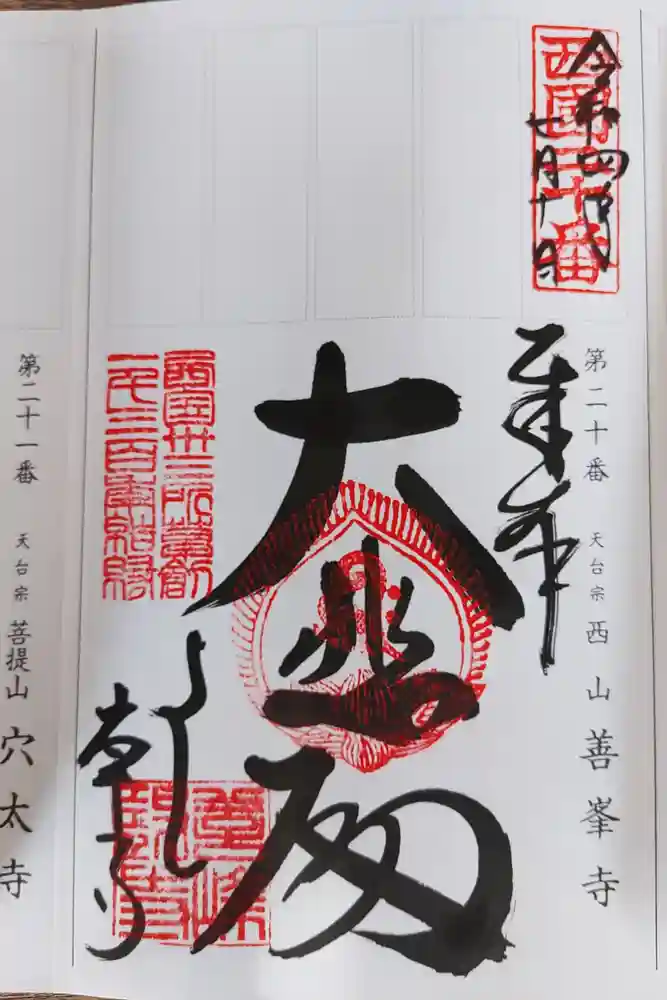 西國二十番
令和四年
七月十日
奉拝
第二十番 天台宗 西山 善峯寺
大悲殿
西国卅三所草創
一千三百年記念
善峯寺
第二十一番 天台宗 菩提山 穴太寺